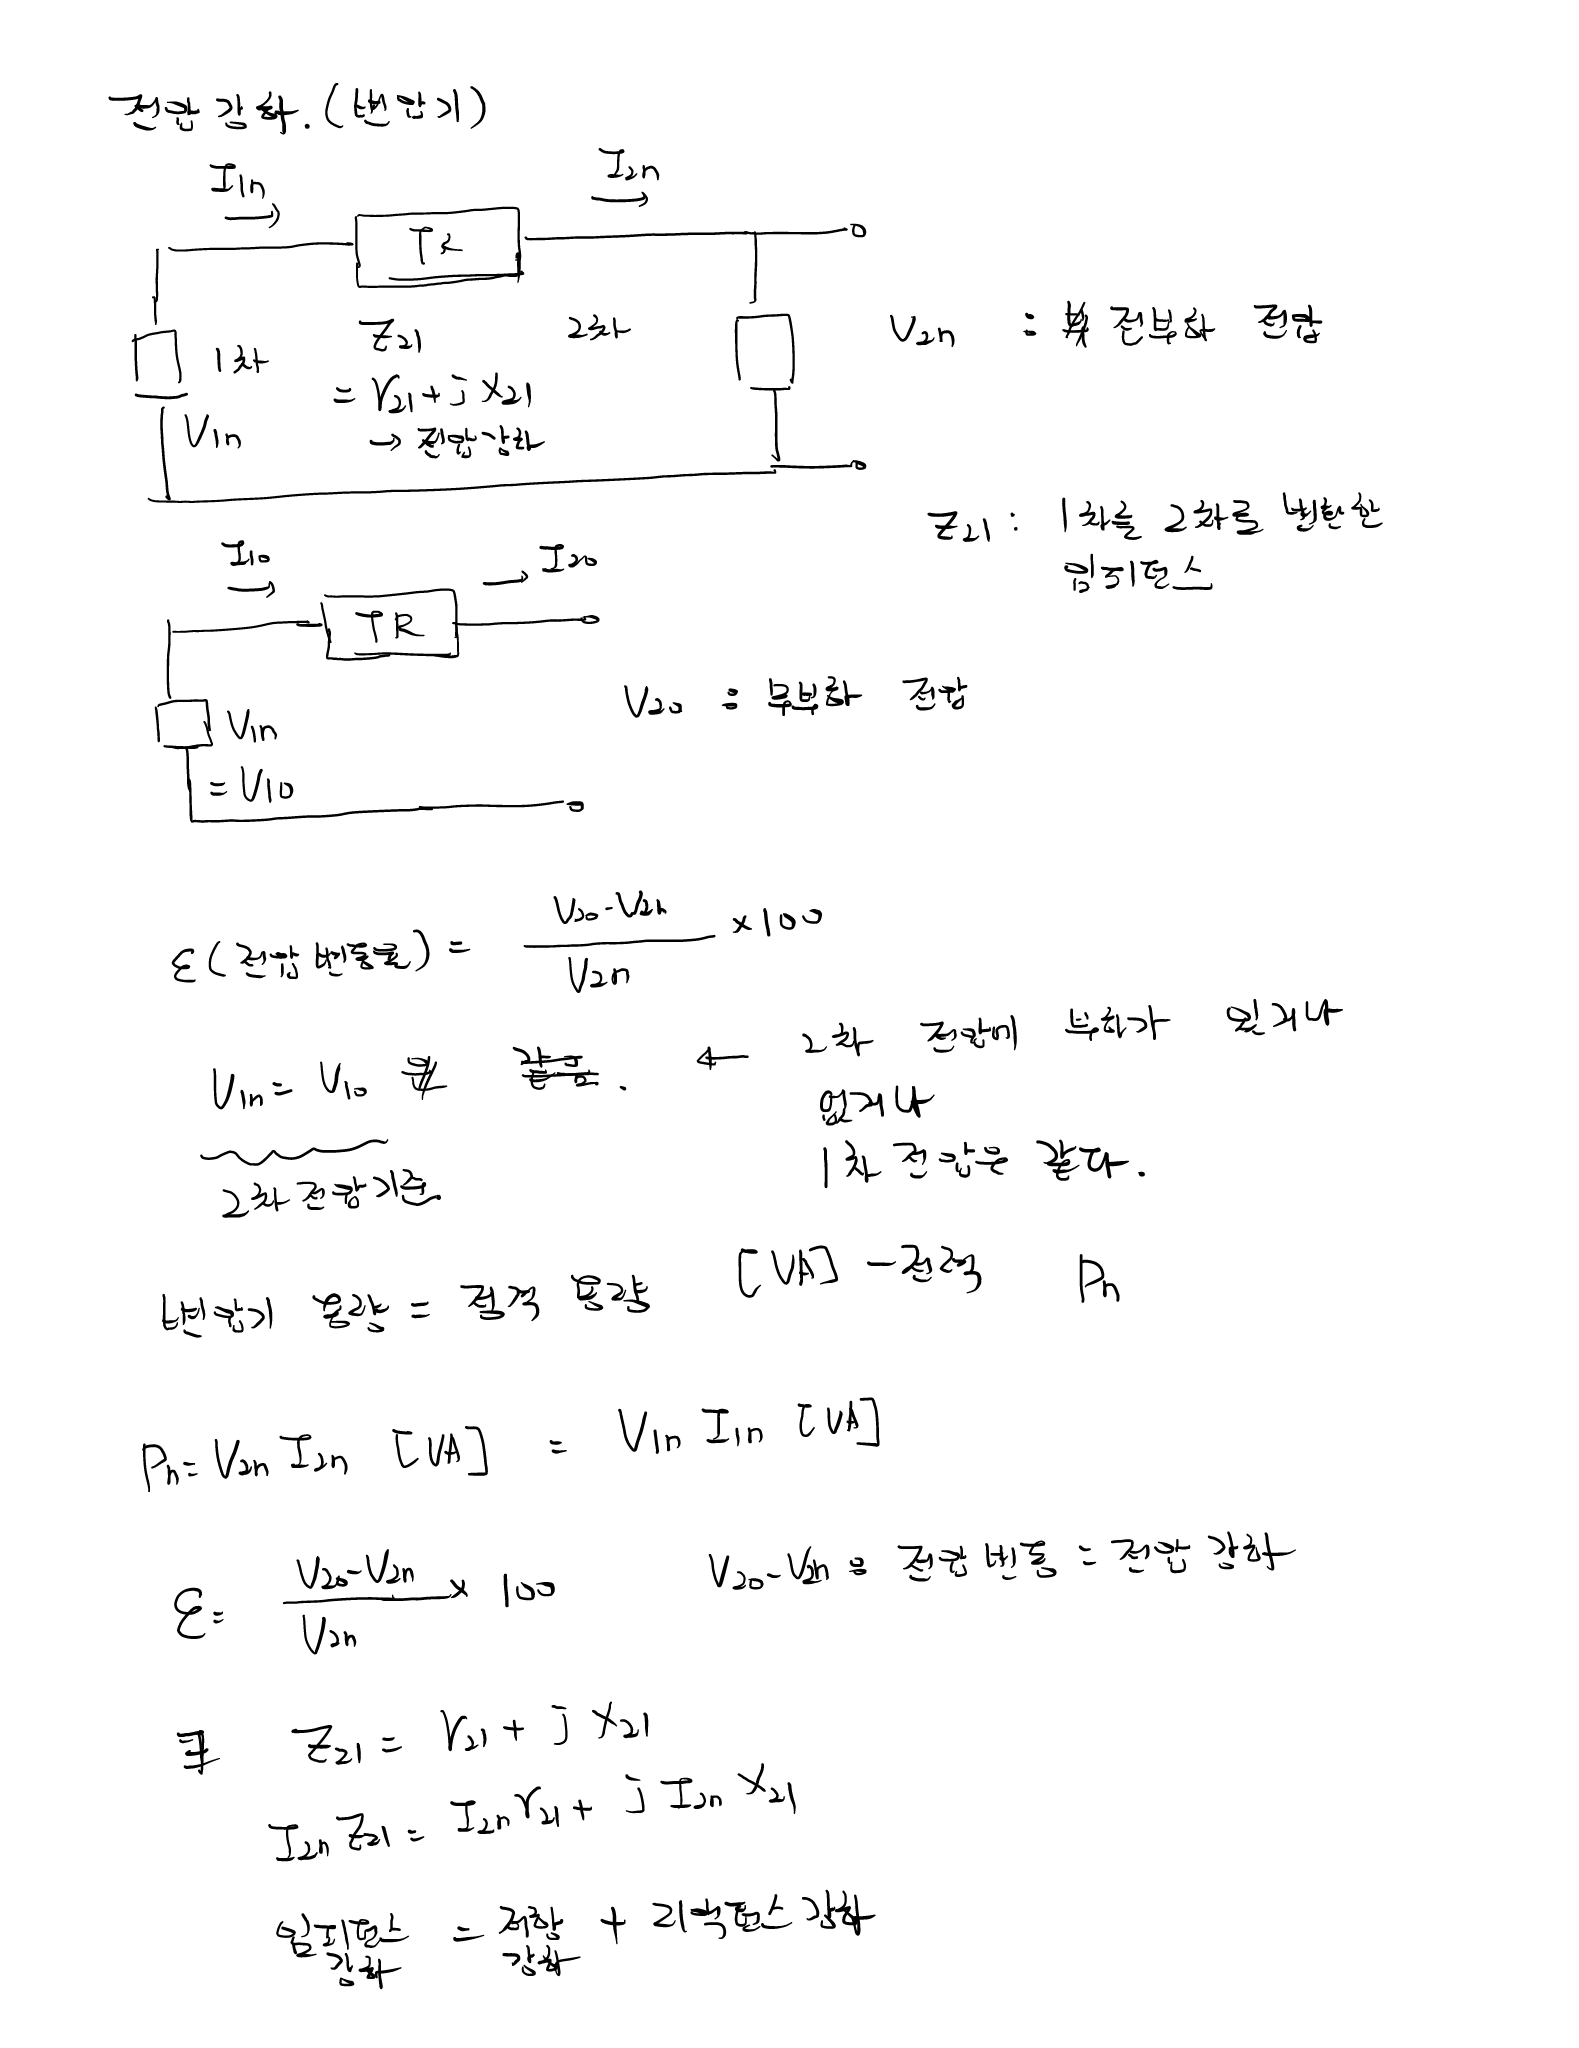 전압 강하. (변압기)
I1n
I2n
TR
1차
Z21
2차
V2n : 전부하 전압
= r21 + j x21
V1n
→ 전압강하
Z21 : 1차를 2차로 변환한
임피던스
I10
I20
TR
V20 : 무부하 전압
V1n
= V10
ε (전압 변동률) = (V20 - V2n) / V2n × 100
V1n = V10 ← 2차 전압에 부하가 있거나
없거나
1차 전압은 같다.
2차 전압 기준
변압기 용량 = 정격 용량 [VA] - 전력 Pn
Pn = V2n I2n [VA] = V1n I1n [VA]
ε = (V20 - V2n) / V2n × 100
V20 - V2n : 전압 변동 = 전압 강하
Z21 = r21 + j x21
I2n Z21 = I2n r21 + j I2n x21
임피던스 강하 = 저항 강하 + 리액턴스 강하